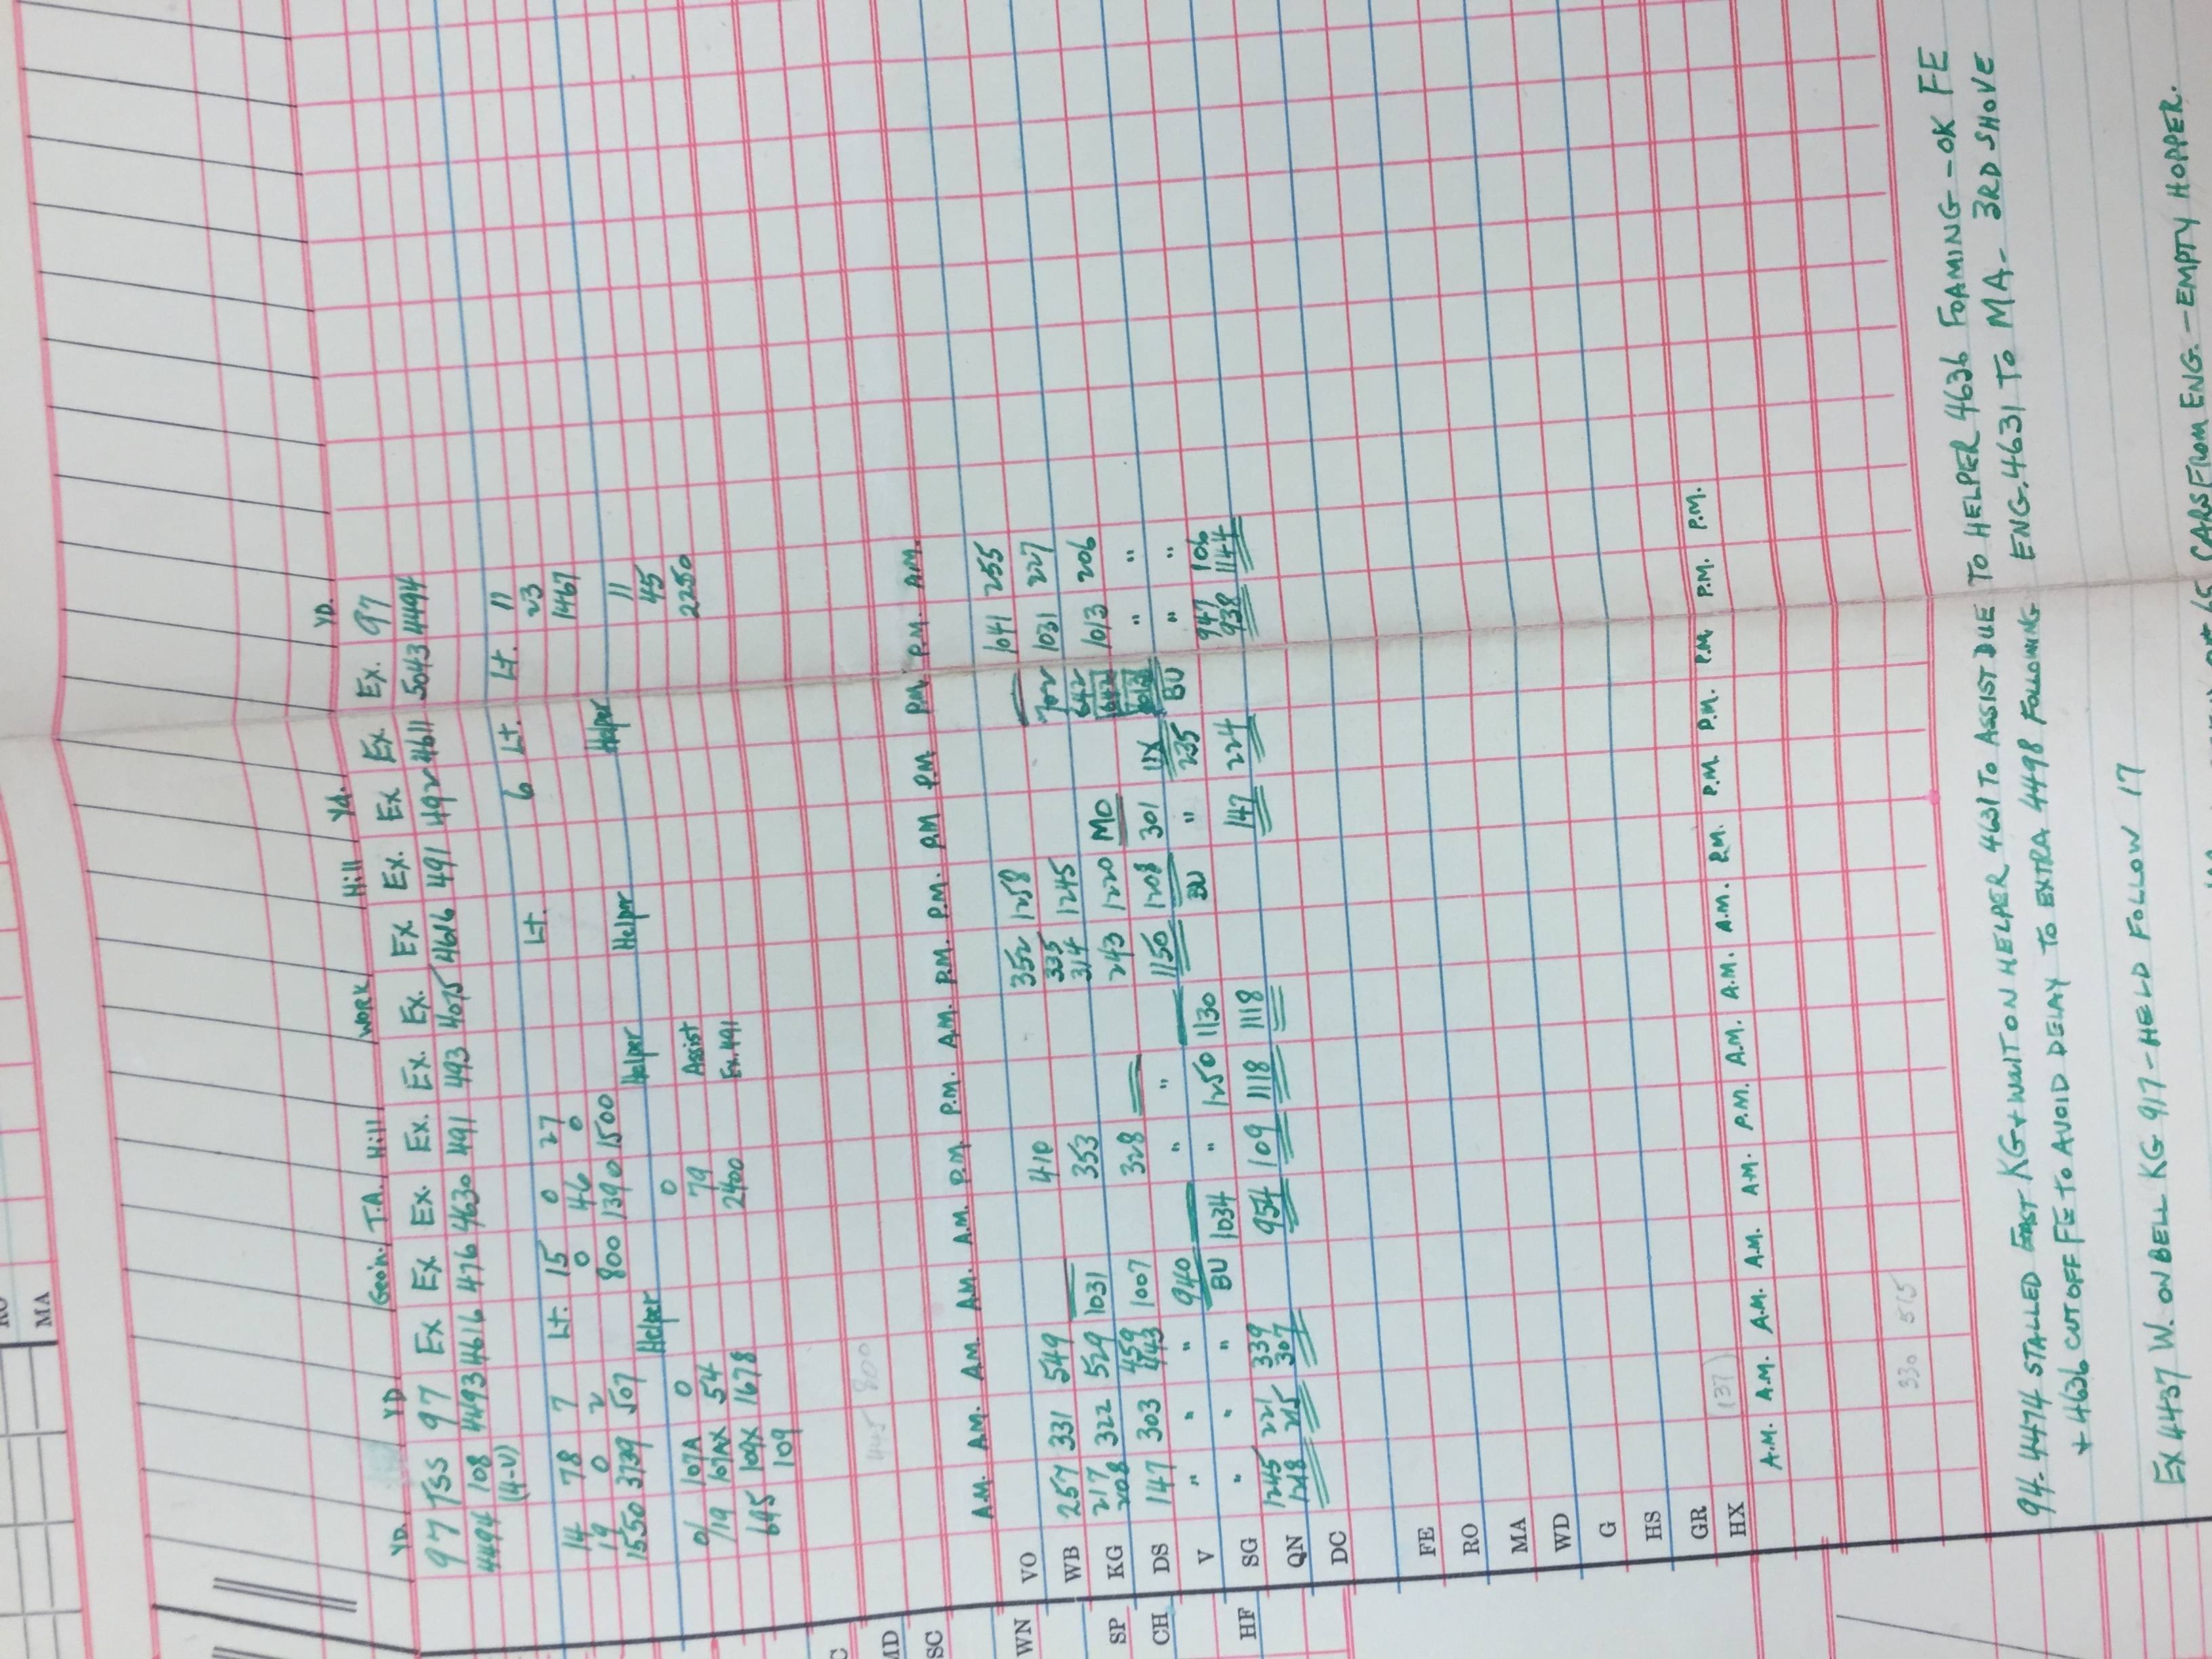 Yd. YD Geo'n. T.A. Hill Work Hill Yd. YD.
97 TSS 97 Ex Ex Ex. Ex. Ex. Ex. Ex Ex. Ex Ex. Ex. 97
4494 108 4493 4616 476 4630 491 493 4075 4616 491 492 4611 5043 4494
(4-U)
14 78 7 Lt. 15 0 27 Lt. 6 Lt. Lt. 11
19 0 2 0 46 0 23
1550 3739 507 800 1390 1500 1467
Helper Helper Helper Helper
0 107A 0 0 Assist 11
/19 107AX 54 79 Ex. 491 45
645 109X 1678 2400 2250
109
445 800
A.M. A.M. A.M. A.M. A.M. P.M. P.M. A.M. P.M. P.M. P.M P.M. P.M. P.M. A.M.
WN VO 410 352 1258 1041 255
WB 257 331 549 353 335 1245 702 1031 227
314 642
SP KG 217 322 529 1031 328 243 1220 MO 1013 206
208
CH DS 147 303 459 1007 " " 1150 1208 301 11X " "
443
V " " " 940 " 1250 1130 BU " 235 BU " "
HF SG " " " BU 1034 109 1118 1118 147 224 947 106
938 1144
QN 1245 221 339 954
1218 215 307
DC
FE
RO
MA
WD
G
HS
GR
HX
(137)
A.M. A.M. A.M. A.M. A.M. P.M. A.M. A.M. A.M. P.M. P.M. P.M. P.M. P.M. P.M.
330 515
94-4474 STALLED EAST KG + WAIT ON HELPER 4631 TO ASSIST DUE TO HELPER 4636 FOAMING - OK FE
+ 4636 CUT OFF FE TO AVOID DELAY TO EXTRA 4498 FOLLOWING ENG. 4631 TO MA - 3RD SHOVE
EX 4437 W. ON BELL KG 917 - HELD FOLLOW 17
65 CARS FROM ENG. - EMPTY HOPPER.
MA
MD
SC